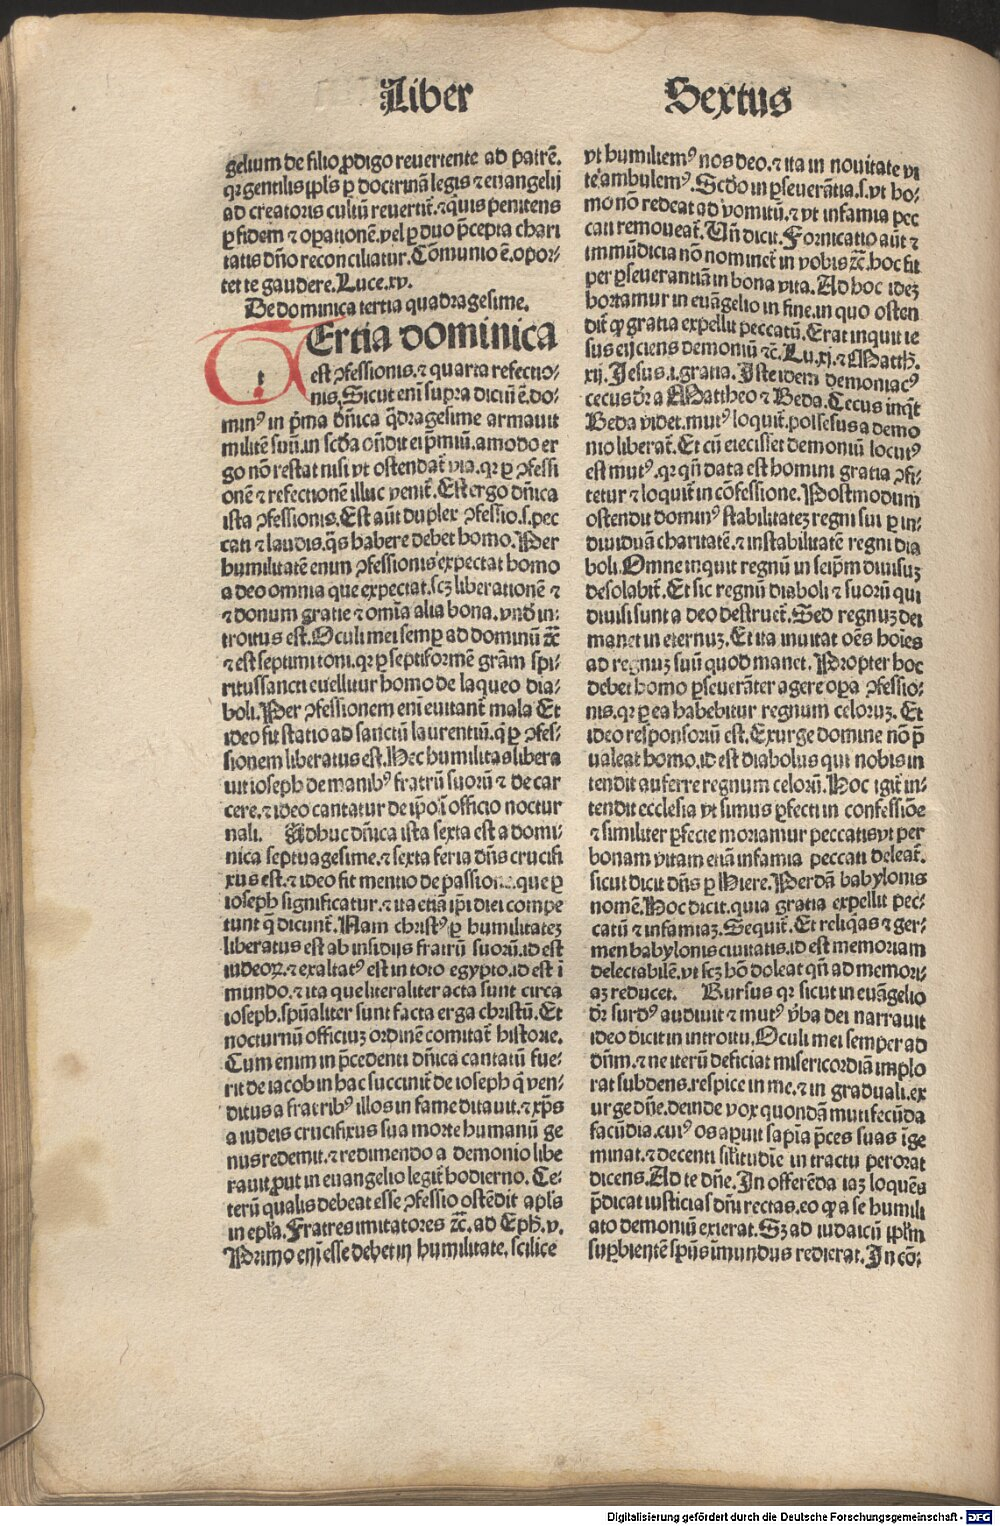 Liber Sextus
gelium de filio ꝓdigo reuertente ad patrē.
qꝛ gentilis ppl̄s ꝑ doctrinā legis ⁊ euangelij
ad creatoris cultū reuertit̄.⁊ quis penitens
ꝑ fidem ⁊ oꝑationē.vel ꝑ duo p̄cepta chari
tatis dn̄o reconciliatur. Cōmunio ē.opor-
tet te gaudere. Luce.xv.
De dominica tertia quadragesime.
tErtia dominica
est ꝯfessionis.⁊ quarta refectio-
nis.Sicut eni supra dictū ē.do-
minꝰ in pͥma dn̄ica q̄dragesime armauit
militē suū.in scd̄a on̄dit ei p̄miū.amodo er
go nō restat nisi vt ostendat̄ via.qꝛ ꝑ ꝯfessi
onē ⁊ refectionē illuc venit̄. Est ergo dn̄ica
ista ꝯfessionis.Est aūt duplex ꝯfessio.s.pec
cati ⁊ laudis.q̄s habere debet homo. Per
humilitatē enim ꝯfessionis expectat homo
a deo omnia que expectat.scꝫ liberationē ⁊
⁊ donum gratie ⁊ om̄ia alia bona.vnd̄ in-
troitus est.Oculi mei semꝑ ad dominū ⁊c̄
⁊ est septimi toni.qꝛ ꝑ septiformē gr̄am spi-
ritussancti euellitur homo de laqueo dia-
boli.Per ꝯfessionem eni euitant̄ mala Et
ideo fit statio ad sanctū laurentiū.q̄ ꝑ ꝯfes-
sionem liberatus est.Hec humilitas libera
uit ioseph de manibꝰ fratrū suorū ⁊ de car
cere.⁊ ideo cantatur de ip̄o ī officio noctur
nali. Adhuc dn̄ica ista sexta est a domi-
nica septuagesime.⁊ sexta feria dn̄s crucifi
xus est.⁊ ideo fit mentio de passione.que ꝑ
ioseph significatur.⁊ ita etiā ip̄i diei compe
tunt q̄ dicunt̄.Nam christꝰ ꝑ humilitatez
liberatus est ab insidijs fratrū suorū.id est
iudeoꝝ.⁊ exaltatꝰ est in toto egypto.id est ī
mundo.⁊ ita que literaliter acta sunt circa
ioseph.spūaliter sunt facta erga christū.Et
nocturnū officiuꝫ ordinē comitat̄ historie.
Cum enim in p̄cedenti dn̄ica cantatū fue-
rit de iacob in hac succinit̄ de ioseph q̄ ven-
ditus a fratribꝰ illos in fame ditauit.⁊ xp̄s
a iudeis crucifixus sua morte humanū ge
nus redemit.⁊ redimendo a demonio libe
rauit ꝓut in euangelio legit̄ hodierno. Ce-
terū qualis debeat esse ꝯfessio ostēdit apl̄s
in epl̄a.Fratres imitatores ⁊c̄. ad Eph.v.
Primo eni esse debet in humilitate,scilice
vt humiliemꝰ nos deo.⁊ ita in nouitate vi
te ambulemꝰ.Scd̄o in ꝑseuerātia.s.vt ho-
mo nō redeat ad vomitū.⁊ vt infamia pec
cati remoueat̄.Vn̄ dicit.Fornicatio aūt ⁊
immūdicia nō nominet̄ in vobis ⁊c̄.hoc fit
per ꝑseuerantiā in bona vita. Ad hoc ideꝫ
hortamur in euāgelio in fine.in quo osten
dit̄ ꝙ gratia expellit peccatū.Erat inquit ie
sus eijciens demoniū ⁊c̄. Lu.xj.⁊ Matth̄.
xij.Jesus.i.gratia. Iste idem demoniacꝰ
cecus dr̄ a Mattheo ⁊ Beda.Cecus inq̄t
Beda videt.mutꝰ loquit̄.possessus a demo
nio liberat̄.Et cū eiecisset demoniū locutꝰ
est mutꝰ.qꝛ qn̄ data est homini gratia ꝯfi-
tetur ⁊ loquit̄ in cōfessione.Postmodum
ostendit dominꝰ stabilitateꝫ regni sui ꝑ in-
diuiduā charitatē.⁊ instabilitatē regni dia
boli.Omne inquit regnū in seip̄m diuisuꝫ
desolabit̄.Et sic regnū diaboli ⁊ suorū qui
diuisi sunt a deo destruet̄.Sed regnuꝫ dei
manet in eternuꝫ.Et ita inuitat oēs hoīes
ad regnuꝫ suū quod manet. Propter hoc
debet homo ꝑseuerāter agere oꝑa ꝯfessio-
nis.qꝛ ꝑ ea habebitur regnum celoruꝫ. Et
ideo responsoriū est.Exurge domine nō p̄
ualeat homo.id est diabolus qui nobis in
tendit auferre regnum celorū.Hoc igit̄ in-
tendit ecclesia vt simus ꝑfecti in confessiōe
⁊ similiter ꝑfecte moriamur peccatis vt per
bonam vitam etiā infamia peccati deleat̄.
sicut dicit dn̄s ꝑ Hiere.Perdā babylonis
nomē.Hoc dicit.quia gratia expellit pec-
catū ⁊ infamiaꝫ.Sequit̄.Et reliq̄as ⁊ ger-
men babylonis ciuitatis.id est memoriam
delectabilē.vt scꝫ hō doleat qn̄ ad memori-
aꝫ reducet. Rursus qꝛ sicut in euāgelio
dr̄ surdꝰ audiuit ⁊ mutꝰ v̄ba dei narrauit
ideo dicit in introitu.Oculi mei semper ad
dn̄m.⁊ ne iterū deficiat misericordiā implo
rat subdens.respice in me.⁊ in graduali.ex
urge dn̄e.deinde vox quondā muti fecūda
facūdia.cuiꝰ os aꝑuit sapīa p̄ces suas īge
minat.⁊ decenti sil̄itudīe in tractu perorat
dicens.Ad te dn̄e.In offerēda iaꝫ loquēs
p̄dicat iusticias dn̄i rectas.eo ꝙ a se humili
ato demoniū exierat.Sꝫ ad iudaicū ppl̄m
suꝑbientē spūs īmundus redierat.In cō-
Digitalisierung gefördert durch die Deutsche Forschungsgemeinschaft - DFG